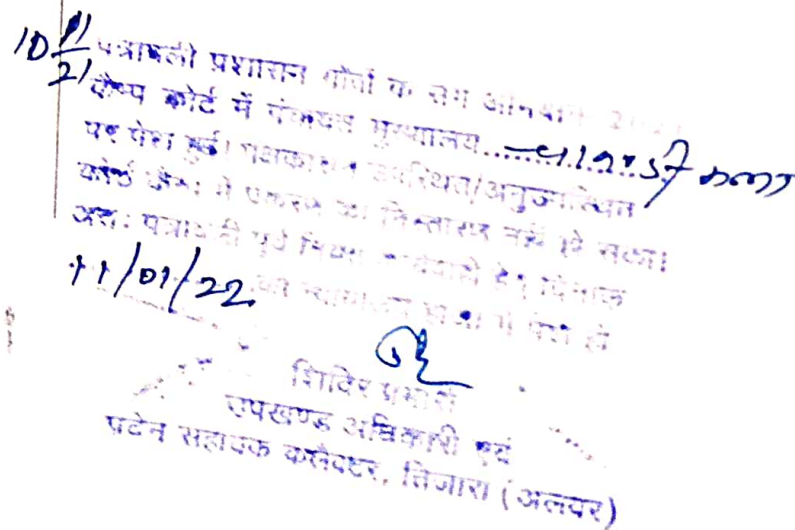 10/11/21
पत्रावली प्रशासन गाँवों के संग अभियान 2021
कैम्प कोर्ट में पंचायत मुख्यालय
पर पेश हुई। पक्षकारान उपस्थित/अनुपस्थित
कोर्ट कैम्प में प्रकरण का निस्तारण नहीं हो सका।
अतः पत्रावली पूर्व नियत कार्यवाही हेतु दिनांक
11/01/22 को न्यायालय हाजा में पेश हो
शिविर प्रभारी
उपखण्ड अधिकारी एवं
पदेन सहायक कलैक्टर, तिजारा (अलवर)